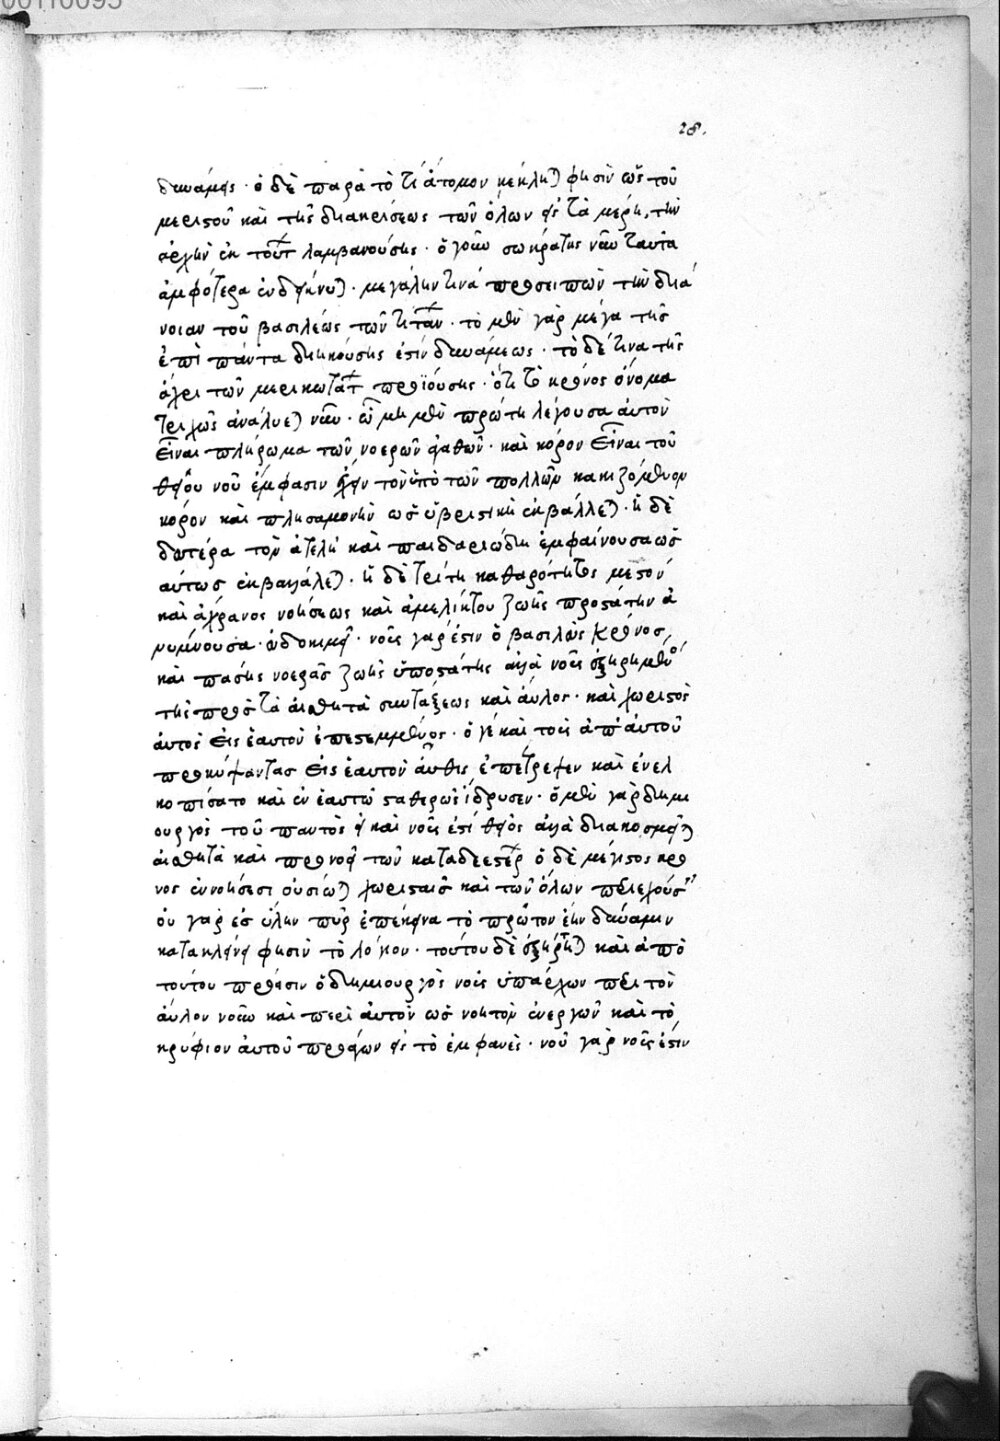 00110095
28.
δυνάμεις · ὁ δὲ παρὰ τὸ τὶ ἄτομον κέκληται φησὶν ὡς τοῦ
μεριστοῦ καὶ τῆς διακρίσεως τῶν ὅλων εἰς τὰ μέρη, τὴν
ἀρχὴν ἐκ τούτων λαμβανούσης · ὁ γοῦν σωκράτης νῦν ταῦτα
ἀμφότερα ἐνδείκνυται · μεγάλην τινὰ προσειπὼν τὴν διά
νοιαν τοῦ βασιλέως τῶν τιτάνων · τὸ μὲν γὰρ μέγα τῆς
ἐπὶ πάντα διηκούσης ἐστὶν δυνάμεως · τὸ δέ τινα τῆς
ἄχρι τῶν μερικωτάτων προϊούσης · ὅτι τὸ κρόνος ὄνομα
τριχῶς ἀνάλυεται νῦν · ὧν ἡ μὲν πρώτη λέγουσα αὐτὸν
εἶναι πλήρωμα τῶν νοερῶν ἀγαθῶν · καὶ κόρον εἶναι τοῦ
θείου νοῦ ἔμφασιν ἔχειν τὸν ὑπὸ τῶν πολλῶν κακιζόμενον
κόρον καὶ πλησμονὴν ὡς ὑβριστικὴ ἐκβάλλεται · ἡ δὲ
δευτέρα τὸν ἀτελῆ καὶ παιδαριώδη ἐμφαίνουσα ὡς
αύτως ἐκβάλλεται · ἡ δὲ τρίτη καθαρότητος μεστὸν
καὶ ἀχράντου νοήσεως καὶ ἀμειλίκτου ζωῆς προστάτην ἀ
νυμνοῦσα · εὐδοκιμεῖ · νοῦς γάρ ἐστιν ὁ βασιλεὺς κρόνος,
καὶ πάσης νοερᾶς ζωῆς ὑποστάτης ἀλλὰ νοῦς ἐξῃρημένος
τῆς πρὸς τὰ αἰσθητὰ συντάξεως καὶ ἄυλος · καὶ χωριστὸς
αὐτὸς εἰς ἑαυτὸν ἐπεστραμμένος · ὅ γε καὶ τοὺς ἀπ' αὐτοῦ
προκύψαντας εἰς ἑαυτὸν αὖθις ἐπέστρεψεν καὶ ἐνεκ
κολπίσατο καὶ ἐν ἑαυτῷ σταθερῶς ἵδρυσεν · ὁ μὲν γὰρ δημι
ουργὸς τοῦ παντὸς εἰ καὶ νοῦς ἐστὶ θεῖος ἀλλὰ διακοσμεῖ τὰ
αἰσθητὰ καὶ προνοεῖ τῶν καταδεεστέρων ὁ δὲ μέγιστος κρό
νος ἐν νοήσεσι οὐσίωται χωρισταῖς καὶ τῶν ὅλων περιεχούσαις
οὐ γὰρ ἐς ὕλην πῦρ ἐπέκεινα τὸ πρῶτον ἑὴν δύναμιν
κατακλείνει φησὶν τὸ λόγιον · τούτου δὲ ἐξήρτηται καὶ ἀπὸ
τούτου πρόεισιν ὁ δημιουργὸς νοῦς ὑπάρχων περὶ τὸν
ἄυλον νοῦν καὶ περὶ αὐτὸν ὡς νοητὸν ἐνεργῶν καὶ τὸ
κρύφιον αὐτοῦ προάγων εἰς τὸ ἐμφανές · νοῦ γὰρ νοῦς ἐστὶν